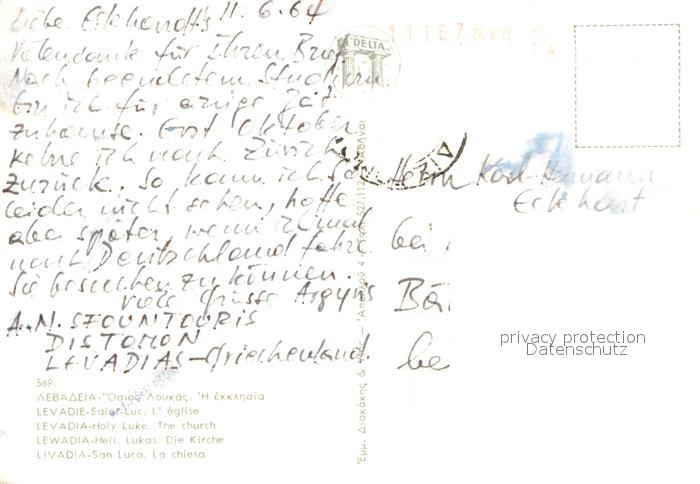 Liebe Eckhardt's 11.6.64
Vielen Dank für Ihren Brief
Nach beendetem Studium
bin ich für einige Zeit
zuhause. Erst Oktober
kehre ich nach Zürich
zurück. So kann ich Sie
leider nicht sehen, hoffe
aber später, wenn ich mal
nach Deutschland fahre
Sie besuchen zu können.
viele Grüsse Argyris
A.N. SFOUNTOURIS
DISTOMON
LEVADIAS-Griechenland.
569.
ΛΕΒΑΔΕΙΑ-Ὅσιος Λουκᾶς. Ἡ ἐκκλησία
LEVADIE-Saint-Luc. L' église
LEVADIA-Holy Luke. The church
LEWADIA-Heil. Lukas. Die Kirche
LIVADIA-San Luca. La chiesa
Ἐμμ. Διακάκης &
DELTA
11167
Herrn Karl-Hermann
Eckhart
bei
Bä
be
privacy protection
Datenschutz